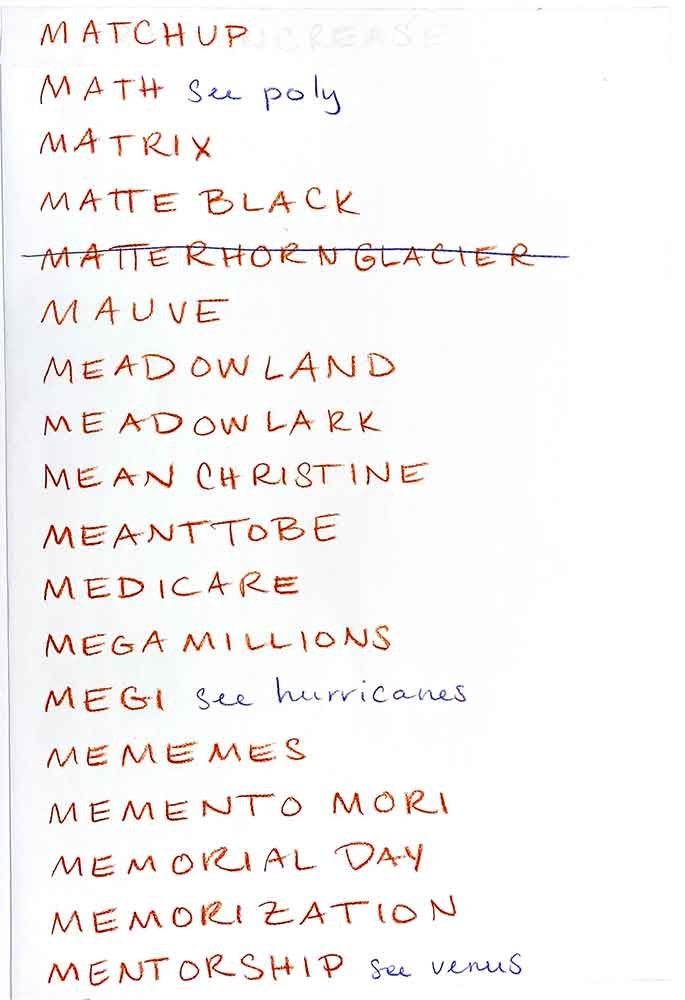 MATCHUP
MATH see poly
MATRIX
MATTE BLACK
MATTERHORN GLACIER
MAUVE
MEADOWLAND
MEADOWLARK
MEAN CHRISTINE
MEANTTOBE
MEDICARE
MEGA MILLIONS
MEGI see hurricanes
MEMEMES
MEMENTO MORI
MEMORIAL DAY
MEMORIZATION
MENTORSHIP see venus